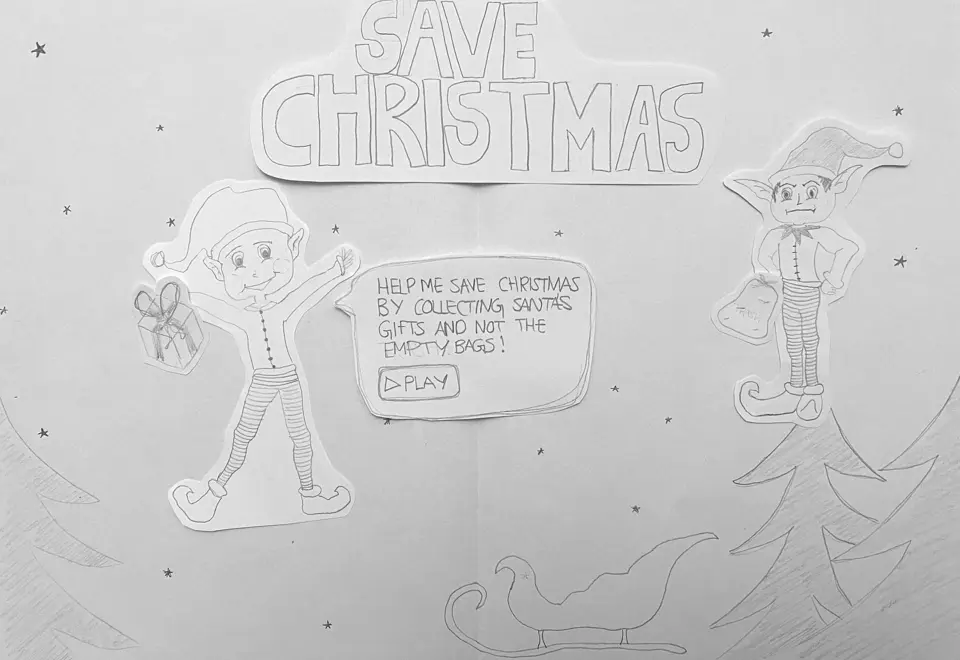 SAVE
CHRISTMAS
HELP ME SAVE CHRISTMAS
BY COLLECTING SANTA'S
GIFTS AND NOT THE
EMPTY BAGS!
▷PLAY